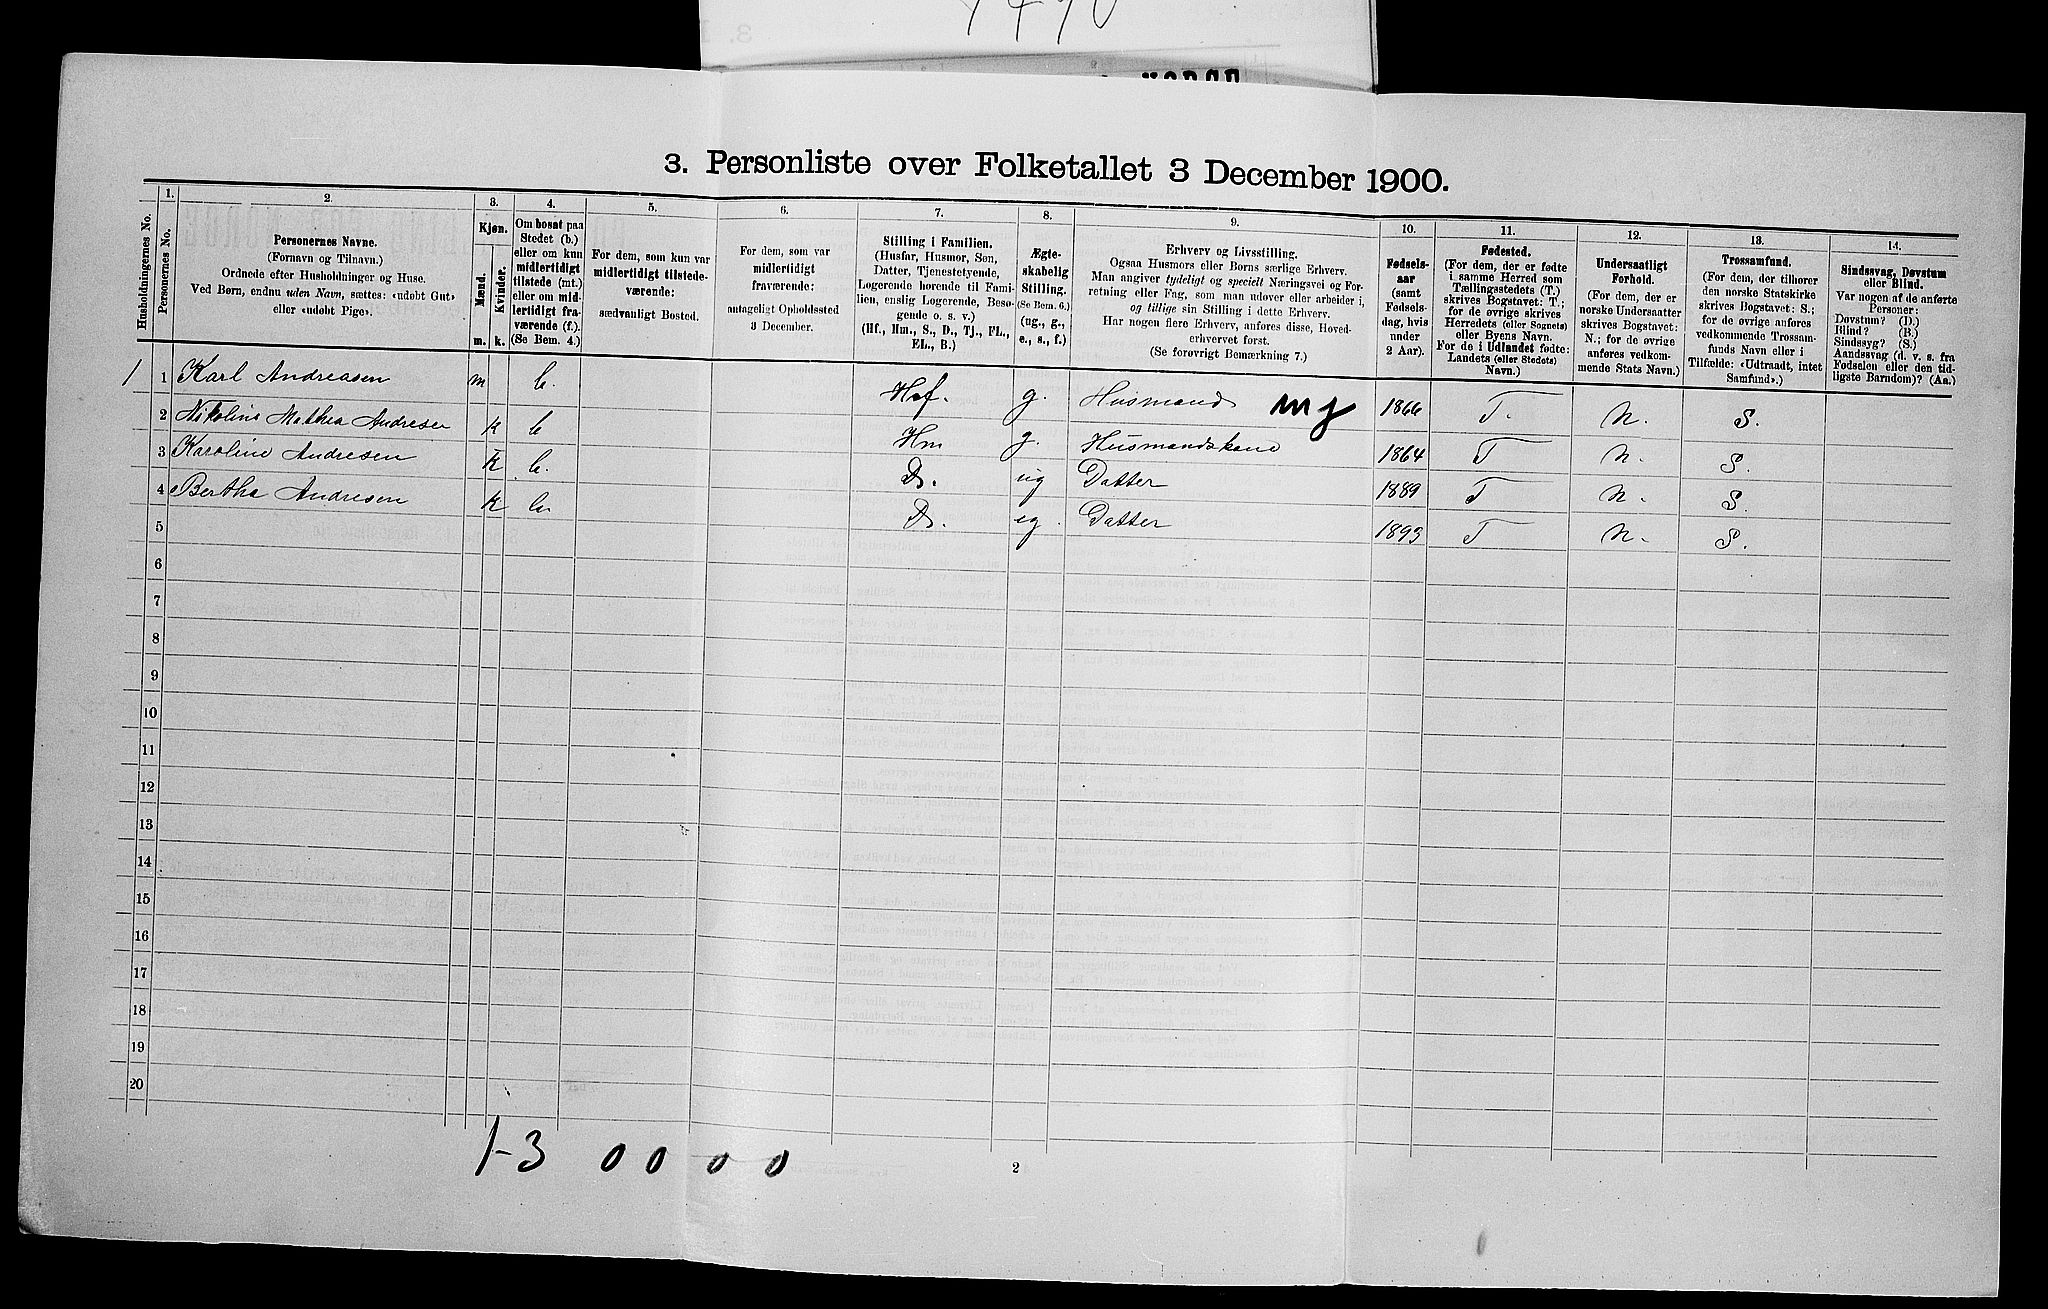 7490
NORGE
3. Personliste over Folketallet 3 December 1900.
Husholdningernes No.
1.
Personernes No.
2.
Personernes Navne.
(Fornavn og Tilnavn.)
Ordnede efter Husholdninger og Huse.
Ved Børn, endnu uden Navn, sættes: «udøbt Gut»
eller «udøbt Pige».
3.
Kjøn.
Mænd.
Kvinder.
m. k.
4.
Om bosat paa
Stedet (b.)
eller om kun
midlertidigt
tilstede (mt.)
eller om mid-
lertidigt fra-
værende (f.).
(Se Bem. 4.)
5.
For dem, som kun var
midlertidigt tilstede-
værende:
sædvanligt Bosted.
6.
For dem, som var
midlertidigt
fraværende:
antageligt Opholdssted
3 December.
7.
Stilling i Familien.
(Husfar, Husmor, Søn,
Datter, Tjenestetyende,
Logerende hørende til Fami-
lien, enslig Logerende, Besø-
gende o. s. v.)
(Hf., Hm., S., D., Tj., FL.,
EL., B.)
8.
Ægte-
skabelig
Stilling.
(Se Bem. 6.)
(ug., g.,
e., s., f.)
9.
Erhverv og Livsstilling.
Ogsaa Husmors eller Børns særlige Erhverv.
Man angiver tydeligt og specielt Næringsvei og For-
retning eller Fag, som man udøver eller arbeider i,
og tillige sin Stilling i dette Erhverv.
Har nogen flere Erhverv, anføres disse, Hoved-
erhvervet først.
(Se forøvrigt Bemærkning 7.)
10.
Fødsels-
aar
(samt
Fødsels-
dag, hvis
under
2 Aar).
11.
Fødested.
(For dem, der er fødte
i samme Herred som
Tællingsstedets (T.)
skrives Bogstavet: T.;
for de øvrige skrives
Herredets (eller Sognets)
eller Byens Navn.
For de i Udlandet fødte:
Landets (eller Stedets)
Navn.)
12.
Undersaatligt
Forhold.
(For dem, der er
norske Undersaatter
skrives Bogstavet:
N.; for de øvrige
anføres vedkom-
mende Stats Navn.)
13.
Trossamfund.
(For dem, der tilhører
den norske Statskirke
skrives Bogstavet: S.;
for de øvrige anføres
vedkommende Trossam-
funds Navn eller i
Tilfælde: «Udtraadt, intet
Samfund».)
14.
Sindssvag, Døvstum
eller Blind.
Var nogen af de anførte
Personer:
Døvstum? (D.)
Blind? (B.)
Sindssyg? (S.)
Aandssvag (d. v. s. fra
Fødselen eller den tid-
ligste Barndom)? (Aa.)
1 1 Karl Andreasen m b. Hf. g. Husmand mj 1866 T. N. S.
2 Nikoline Mathea Andresen k b Hm g. Husmandskone 1864 T N. S.
3 Karoline Andresen k b. D. ug Datter 1889 T N. S.
4 Bertha Andresen k b. D. ug. Datter 1893 T N. S.
5
6
7
8
9
10
11
12
13
14
15
16
17
18
19
20
1-3 0 0 0 0
2